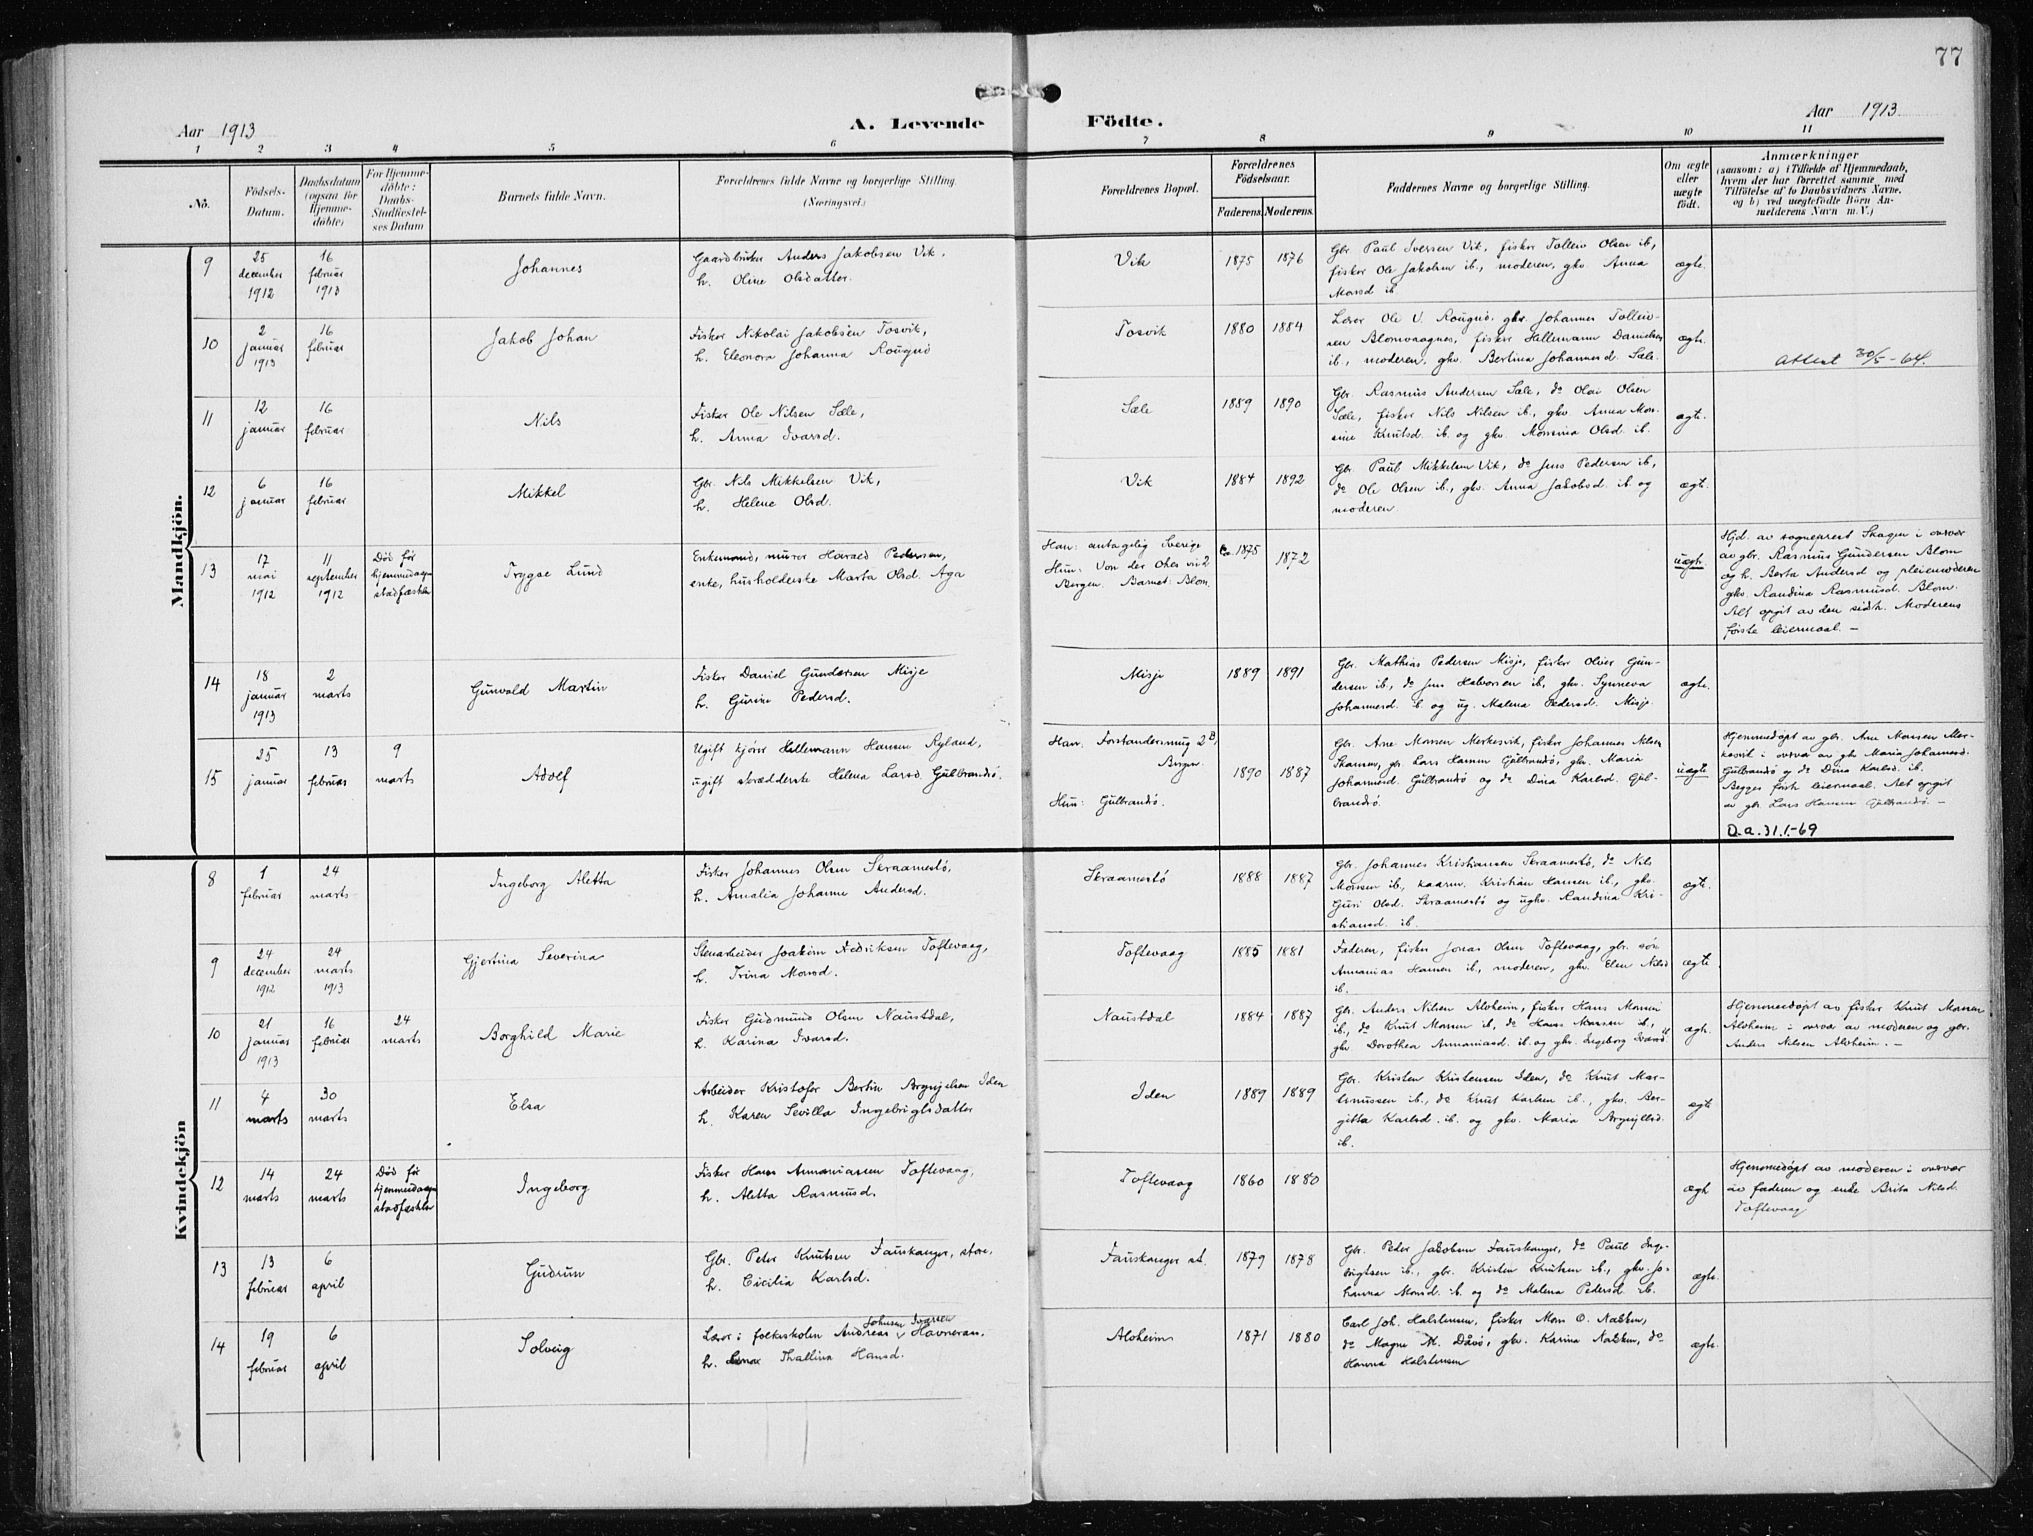 77
Aar 1913
A. Levende Födte.
Aar 1913
1 2 3 4 5 6 7 8 9 10 11
No.
Födsels-
Datum.
Daabsdatum
(ogsaa for
Hjemme-
döbte)
For Hjemme-
döbte:
Daabs-
Stadfæstel-
ses Datum
Barnets fulde Navn.
Forældrenes fulde Navne og borgerlige Stilling.
(Næringsvei.)
Forældrenes Bopæl.
Forældrenes
Födselsaar.
Faderens. Moderens.
Faddernes Navne og borgerlige Stilling.
Om ægte
eller
uægte
födt.
Anmærkninger
(saasom: a) i Tilfælde af Hjemmedaab,
hvem der har forrettet samme med
Tilföielse af to Daabsvidners Navne.
og b) ved uægtefödte Börn An-
melderens Navn m. V.)
Mandkjön.
9
25
december
1912
16
februar
1913
Johannes
Gaardbruker Anders Jakobsen Vik,
h. Oline Olsdatter.
Vik
1875 1876
Gbr. Paul Iversen Vik, fisker Tolleiv Olsen ib,
fisker Ole Jakobsen ib., moderen, gkv. Anna
Monsd ib.
ægte.
10
2
januar
1913
16
februar
Jakob Johan
Fisker Nikolai Jakobsen Tosvik,
h. Eleonora Johanna Rougnø
Tosvik
1880 1884
Lærer Ole V. Rougnø, gbr. Johannes Tolleiv-
sen Blomvaagnes, fisker Hellemann Danielsen
ib., moderen, gkv. Bertina Johannesd. Sæle.
ægte.
Attest 30/5-64.
11
12
januar
16
februar
Nils
Fisker Ole Nilsen Sæle,
h. Anna Ivarsd.
Sæle
1889 1890
Gbr. Rasmus Andersen Sæle, do Olai Olsen
Sæle, fisker Nils Nilsen ib., gkv. Anna Mon-
sine Knutsd. ib. og gkv. Monsina Olsd. ib.
ægte.
12
6
januar
16
februar
Mikkel
Gbr. Nils Mikkelsen Vik,
h. Helene Olsd.
Vik
1884 1892
Gbr. Paul Mikkelsen Vik, do Jens Pedersen ib,
do Ole Olsen ib., gkv. Anna Jakobsd. ib. og
moderen.
ægte.
13
17
mai
1912
11
september
1912
Død før
hjemmedaapen
stadfæstedes
Trygve Lund
Enkemand, murer Harald Pedersen,
enke, husholderske Marta Olsd. Aga
Han: antagelig Sverige
Hun: Von der Ohes vei 2
Bergen. Barnet: Blom.
Ca. 1875 1872
uægte.
Hjd. av sogneprest Skagen i overvær
av gbr. Rasmus Gundersen Blom
og h. Berta Andersd og pleiemoderen
gkv. Randina Rasmusd. Blom.
Alt opgit av den sidste. Moderens
første leiermaal. -
14
18
januar
1913
2
marts
Gunvald Martin
Fisker Daniel Gundersen Misje
h. Gurine Pedersd.
Misje
1889 1891
Gbr. Mathias Pedersen Misje, fisker Olver Gun-
dersen ib., do Jens Halvorsen ib, gkv. Synneva
Johannesd. ib. og ug. Malena Pedersd. Misje.
ægte.
15
25
januar
13
februar
9
marts
Adolf
Ugift kjører Hellemann Hansen Ryland,
ugift skrædderske Helena Larsd. Gulbrandsø.
Han: Forstandersmug 2B,
Bergen.
Hun: Gulbrandsø.
1890 1887
Gbr. Arne Monsen Merkesvik, fisker Johannes Nilsen
Skarnes, gbr. Lars Hansen Gulbrandsø, gkv. Maria
Johannesd. Gulbrandsø og do Dina Karlsd. Gul-
brandsø.
uægte
Hjemmedøpt av gbr. Arne Monsen Mer-
kesvik i overvær av gkv. Maria Johannesd.
Gulbrandsø og do Dina Karlsd. ib.
Begges første leiermaal. Alt opgit
av gbr. Lars Hansen Gulbrandsø. -
D.a.31.1.-69
Kvindekjön
8
1
februar
24
marts
Ingeborg Aletta
Fisker Johannes Olsen Skraamestø,
h. Amalia Johanne Andersd.
Skraamestø
1888 1887
Gbr. Johannes Kristiansen Skraamestø, do Nils
Monsen ib., kaarm. Kristian Hansen ib., gkv.
Guri Olsd. Skraamestø og ugkv. Randina Kri-
stiansd. ib.
ægte.
9
24
december
1912
24
marts
1913
Gjertina Severina
Stenarbeider Joakim Fredriksen Toftevaag,
h. Trina Monsd.
Toftevaag
1885 1881
Faderen, fisker Jonas Olsen Toftevaag, gbr. søn
Annanias Hansen ib., moderen, gkv. Elen Nilsd
ib.
ægte
10
21
januar
1913
16
februar
24
marts
Borghild Marie
Fisker Gudmund Olsen Naustdal,
h. Karina Ivarsd.
Naustdal
1884 1887
Gbr. Anders Nilsen Alvheim, fisker Hans Monsen
ib., do Knut Monsen ib, do Hans Monsen ib.,
gkv. Dorothea Annaniasd. ib. og gkv. Ingeborg Ivarsd. ib
ægte.
Hjemmedøpt av fisker Knut Monsen
Alvheim i overvær av moderen og gbr.
Anders Nilsen Alvheim. -
11
4
marts
30
marts
Elsa
Arbeider Kristofer Bertin Brynjelsen Iden
h. Karen Sevilla Ingebrigtsdatter
Iden
1889 1889
Gbr. Kristen Kristensen Iden, do Knut Mar-
tinussen ib., do Knut Karlsen ib., gkv. Ber-
gitta Karlsd. ib. og gkv. Maria Brynjulfsd.
ib.
ægte
12
14
marts
24
marts
Død før
hjemmedaapen
stadfæstedes
Ingeborg
Fisker Hans Annaniassen Toftevaag,
h. Aletta Rasmusd.
Toftevaag
1860 1880
ægte
Hjemmedøpt av moderen i overvær
av faderen og enke Brita Nilsd.
Toftevaag
13
13
februar
6
april
Gudrun
Gbr. Peter Knutsen Fauskanger, store,
h. Cicilia Karlsd.
Fauskanger st.
1879 1878
Gbr. Peder Jakobsen Fauskanger, do Paul Inge-
brigtsen ib., gbr. Kristen Knutsen ib., gkv. Jo-
hanna Monsd. ib. og do Malena Pedersd. ib.
ægte.
14
19
februar
6
april
Solveig
Johnsen Ivarsen
Lærer i folkeskolen Andreas v Havneraa,
h. Thallina Hansd.
Alvheim
1871 1880
Carl Joh. Halstensen, fisker Mons O. Nabben,
do Magne M. Dåvø, gkv. Karina Nabben, do
Hanna Halstensen
ægte.